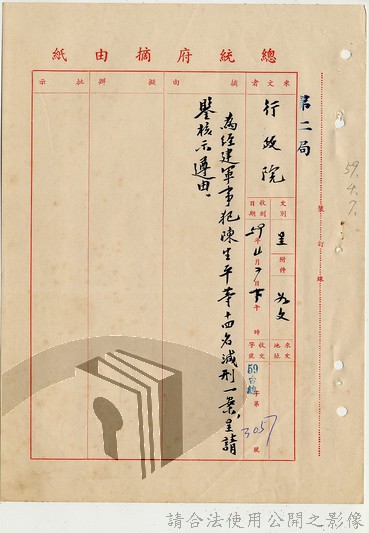 總統府摘由紙
第二局
59.4.7.
裝訂線
來文者
行政院
文別
呈
附件
如文
收到日期
59年4月7日下午 時
來文地址
收文字號
59台總 年 第 3057 號
摘由
為經建軍事犯陳生平等十四名減刑一案，呈請
鑒核示遵由。
擬辦
批示
請合法使用公開之影像